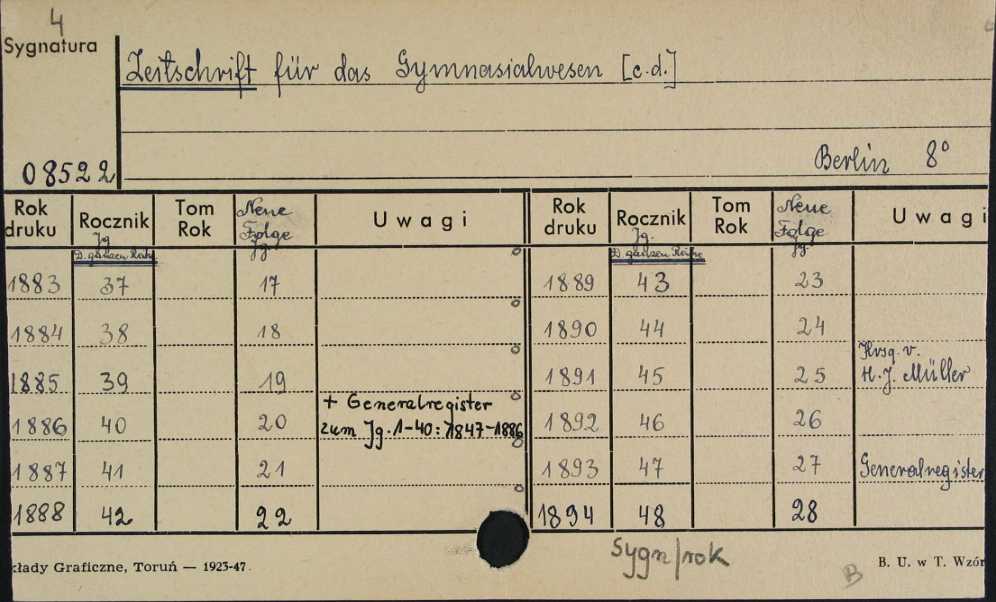 4
Sygnatura
Zeitschrift für das Gymnasialwesen [c.d.]
08522
Berlin 8°
Rok druku Rocznik Tom Rok Neue Folge Jg. Uwagi Rok druku Rocznik Tom Rok Neue Folge Jg. Uwagi
Jg. D. ganzen Reihe Jg. D. ganzen Reihe
1883 37 17 1889 43 23
1884 38 18 1890 44 24
1885 39 19 1891 45 25 Hrsg. v. H. J. Müller
1886 40 20 + Generalregister zum Jg. 1-40: 1847-1886 1892 46 26
1887 41 21 1893 47 27 Generalregister
1888 42 22 1894 48 28
kłady Graficzne, Toruń — 1923-47.
Sygn/rok
B
B. U. w T. Wzór